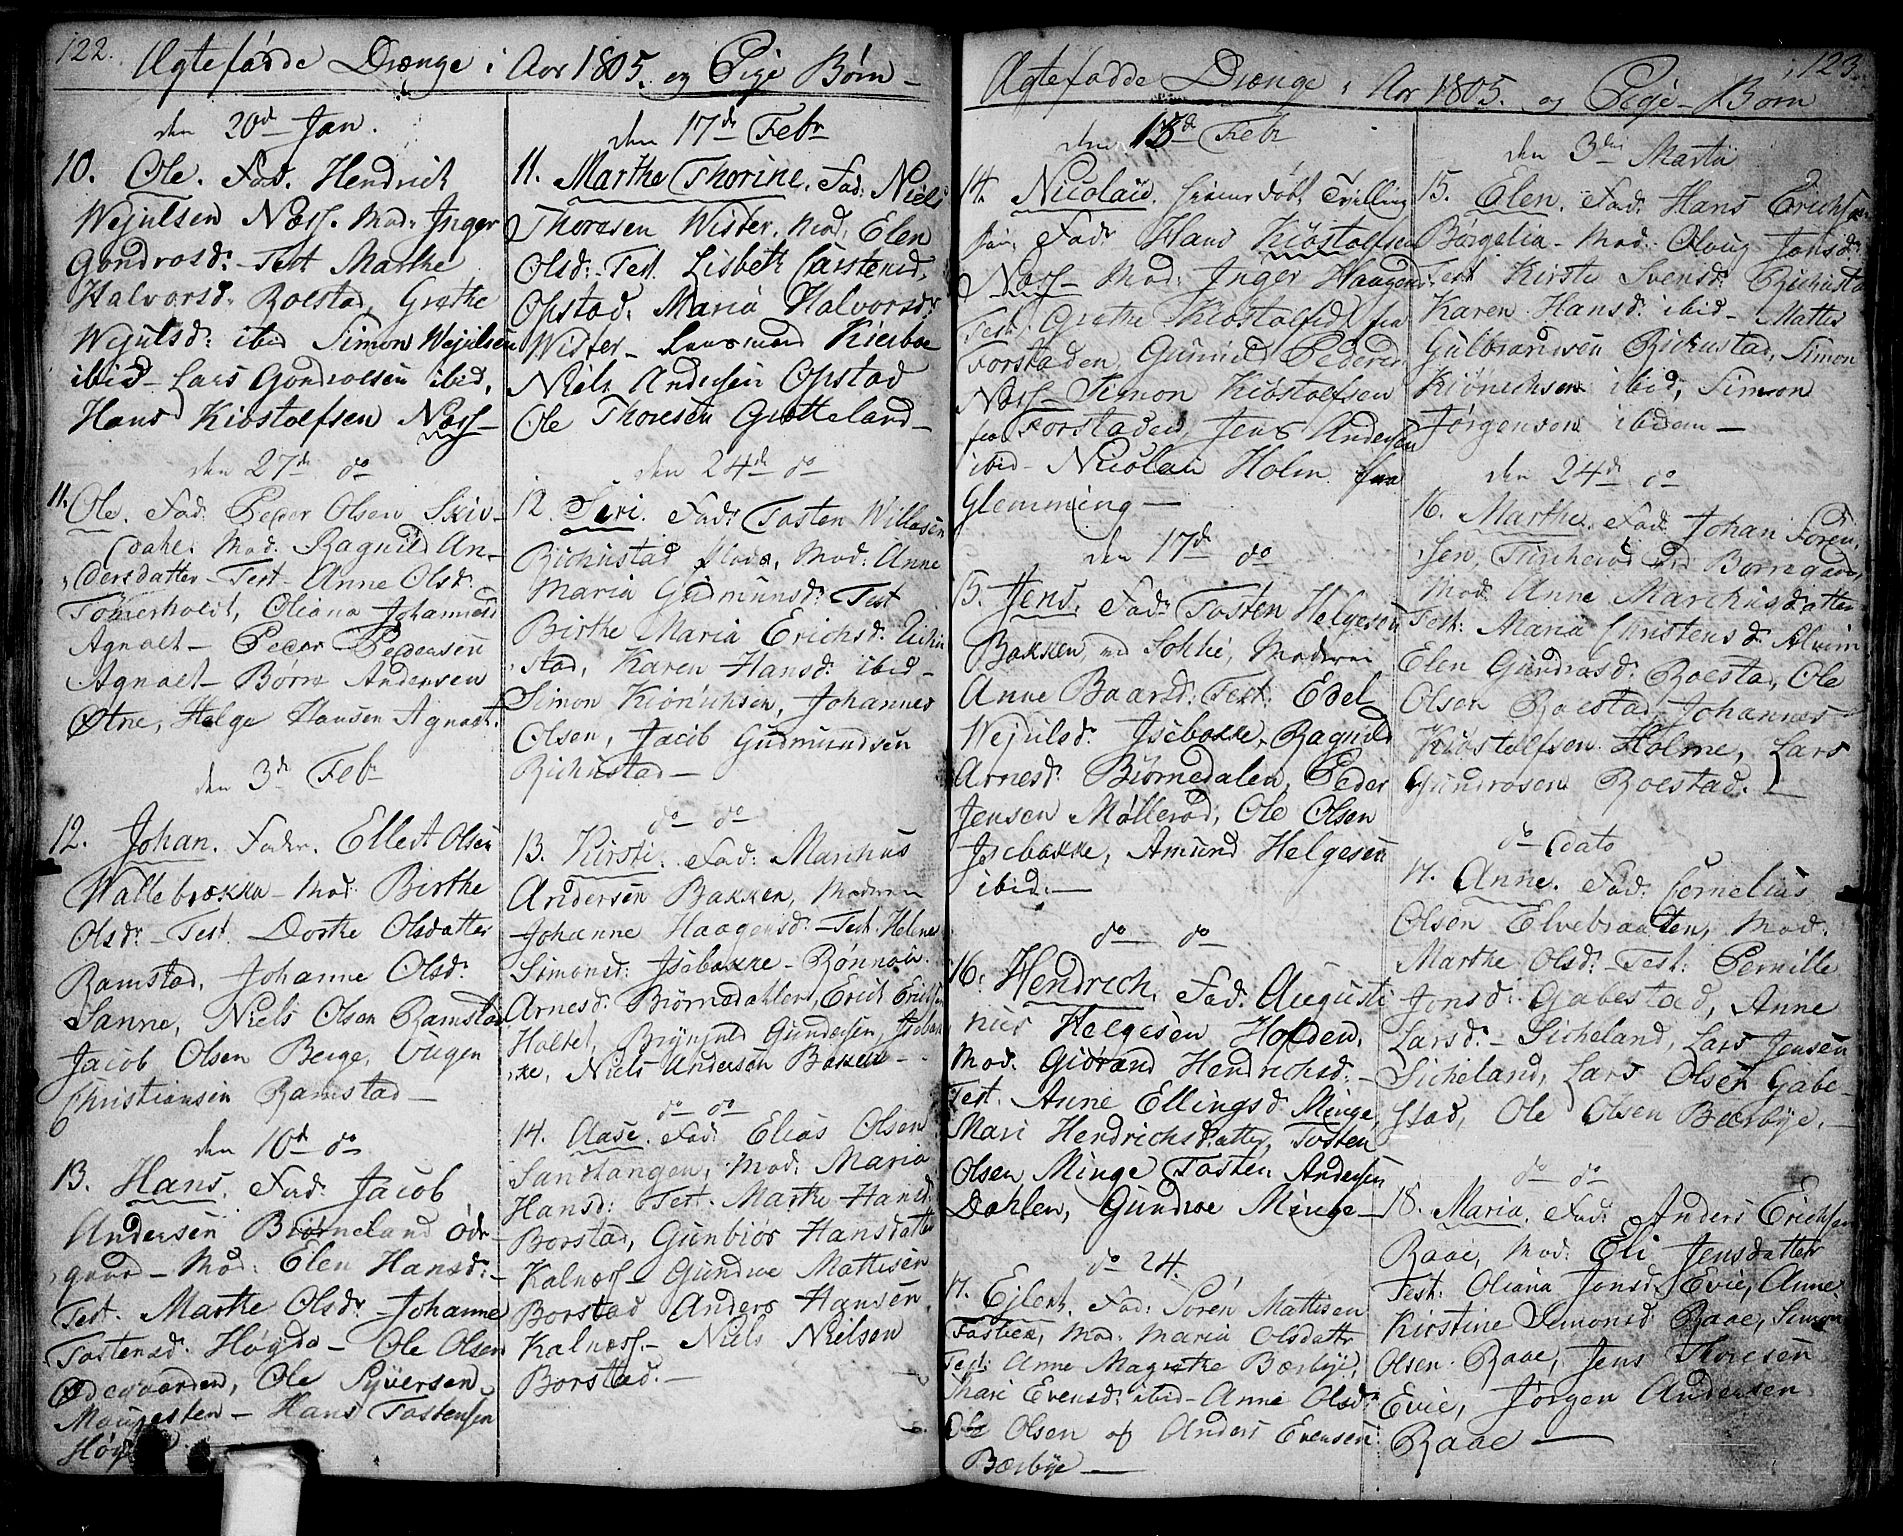 122. Ægtefødde Drenge i Aar 1805. og Pige Børn
den 20d Jan.
10. Ole. Fad. Hendrich
Wejulsen Næss. Mod: Inger
Gondrosd: Test Marthe
Halvorsd: Roestad, Grethe
Wejulsd: ibid Simon Wejulsen
ibid - Lars Gondrosen ibid,
Hans Kiøstolfsen Næss -
den 27d do
11. Ole. Fad: Peder Olsen Skiv-
dahl. Mod. Ragnild An-
dersdatter - Test - Anne Olsd:
Tømerholdt, Oliana Johannesd
Agnalt - Peder Pedersen
Agnalt - Børre Andersen
Øtne, Helge Hansen Agnalt.
den 3d Febr
12. Johan. Fader. Ellest Olsen
Wallebrække - Mod: Birthe
Olsdr - Test. Dorthe Olsdatter
Ramstad, Johanne Olsdr.
Sanne, Niels Olsen Ramstad
Jacob Olsen Berge,
Christiansen Ramstad -
den 10d do
13. Hans. Fad: Jacob
Andersen Biørneland Øde-
gaard - Mod: Elen Hansd: -
Test. Marthe Olsdr Johanne
Tostensd: Høgda - Ole Olsen
Ødegaarden, Ole Syversen
- Hans Tostensen
den 17de Febr
11. Marthe Thorine. Fad: Niels
Thoresen Wister. Mod, Elen
Olsd: - Test. Lisbeth Carstensd,
Opstad, Maria Halvorsdr
Wister - Kierboe
Niels Andersen Opstad
Ole Thoresen Grøtteland -
den 24d do
12. Siri. Fadr Tosten Willasen
Richustad, Mod: Anne
Maria Gudmunsd: Test
Birthe Maria Erichsd: Richu
stad, Karen Hansd: ibid -
Simon Kiønichsen, Johannes
Olsen, Jacob Gudmundsen
Richustad -
do do
13. Kirsti. Fad: Marchus
Andersen Bakken, Moderen
Johanne Haagensd: - Test. Helene
Simonsd: Isebakke - Rønnou
Arnesd: Biørnedahlen, Erich Erichsen
Holtet, Brynjuld Gundersen, Isebak
ke, Niels Andersen Bakken -
do do
14. Aase. Fad: Elias Olsen
Sandtangen, Mod: Maria
Hansd: Test: Marthe Hansd:
Borstad, Gunbiør Hansdatter
Kalnæss - Gundroe Mattisen
Borstad Anders Hansen
Kalnæss - Niels Nielsen
Borstad. -
Ægtefødde Drenge i Aar 1805. og Pige - Børn 123.
den 13d Febr
14. Nicolai. hiemedøbt Tvilling
Fadr Hans Kiøstolfsen
Næss - Mod: Inger Haagensd
Test. Grethe Kiøstolfsd. fra
Forstaden Gunild Pedersd
Næss - Simon Kiøstolfsen
fra Forstaden, Jens Andersen
ibid - Nicolai Holm fra
Glemming -
den 17d do
15. Jens. Fadr Tosten Helgesen
Bakken, ved Solli, Moderen
Anne Baardsd: Test: Edel
Wejulsd: Isebakke, Ragnild
Arnesd: Biørnedalen, Peder
Jensen Møllerød, Ole Olsen
Isebakke, Amund Helgesen
ibid. -
do do
16. Hendrich, Fad: Augusti
nus Helgesen Holden.
Mod. Giørand Hendrichsd: -
Test. Anne Ellingsd Minge,
Mari Hendrichsdatter, Tosten
Olsen Minge Tosten Andersen
Dahlen, Gundroe Minge -
do 24.
17. Ejlert. Fad: Søren Mattisen
Mod: Maria Olsdattr
Test: Anne Magrethe Bærbye,
Mari Evensd: ibid - Anne Olsdr
Ole Olsen af Anders Evensen
Bærbye -
den 3die Marti
15. Elen. Fad: Hans Erichsen
Børgelia - Mod: Oloug Jonsd:
Test Kirsti Svensd: Richustad
Karen Hansd: ibid - Mattis
Gulbrandsen Richustad, Simon
Kiønichsen ibid, Simon
Jørgensen ibidem -
den 24d do
16. Marthe. Fad: Johan Søren
sen, ved Borregaard,
Mod: Anne Marchusdatter
Test: Maria Christensd: Alvim
Elen Gundrosd: Roestad, Ole
Olsen Roestad, Johannes
Kiøstolfsen Holme, Lars
Gundrosen Roestad. -
do dato
17. Anne. Fad: Cornelius
Olsen Elvebraaten, Mod:
Marthe Olsd: - Test: Pernille
Jonsd: Gabestad, Anne
Larsd: - Sicheland, Lars Jensen
Sicheland, Lars Olsen Gabe-
stad, Ole Olsen Bærbye. -
do do
18. Maria. Fad: Anders Erichsen
Raae, Mod: Eli Jensdatter
Test: Oliana Jonsd: Evie, Anne
Kirstine Simonsd: Raae, Simon
Olsen Raae, Jens Thoresen
Evie, Jørgen Andersen
Raae -